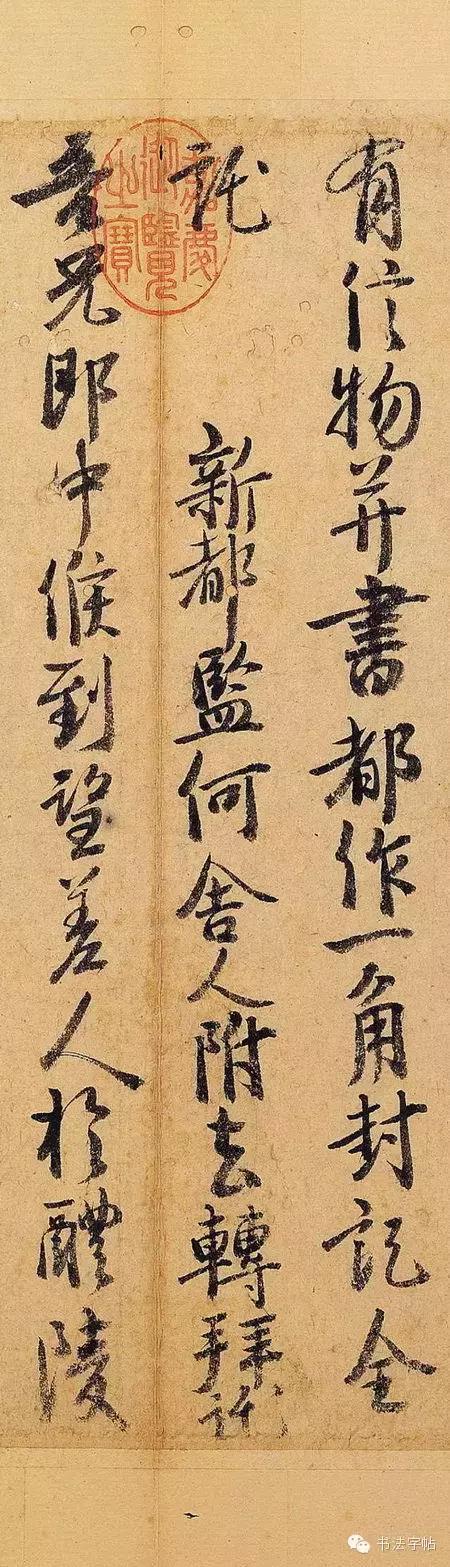 有信物并書都作一角封記全
託
新都監何舍人附去轉拜託
吾兄郎中候到望差人於醴陵
嘉慶御覽之寶
书法字帖